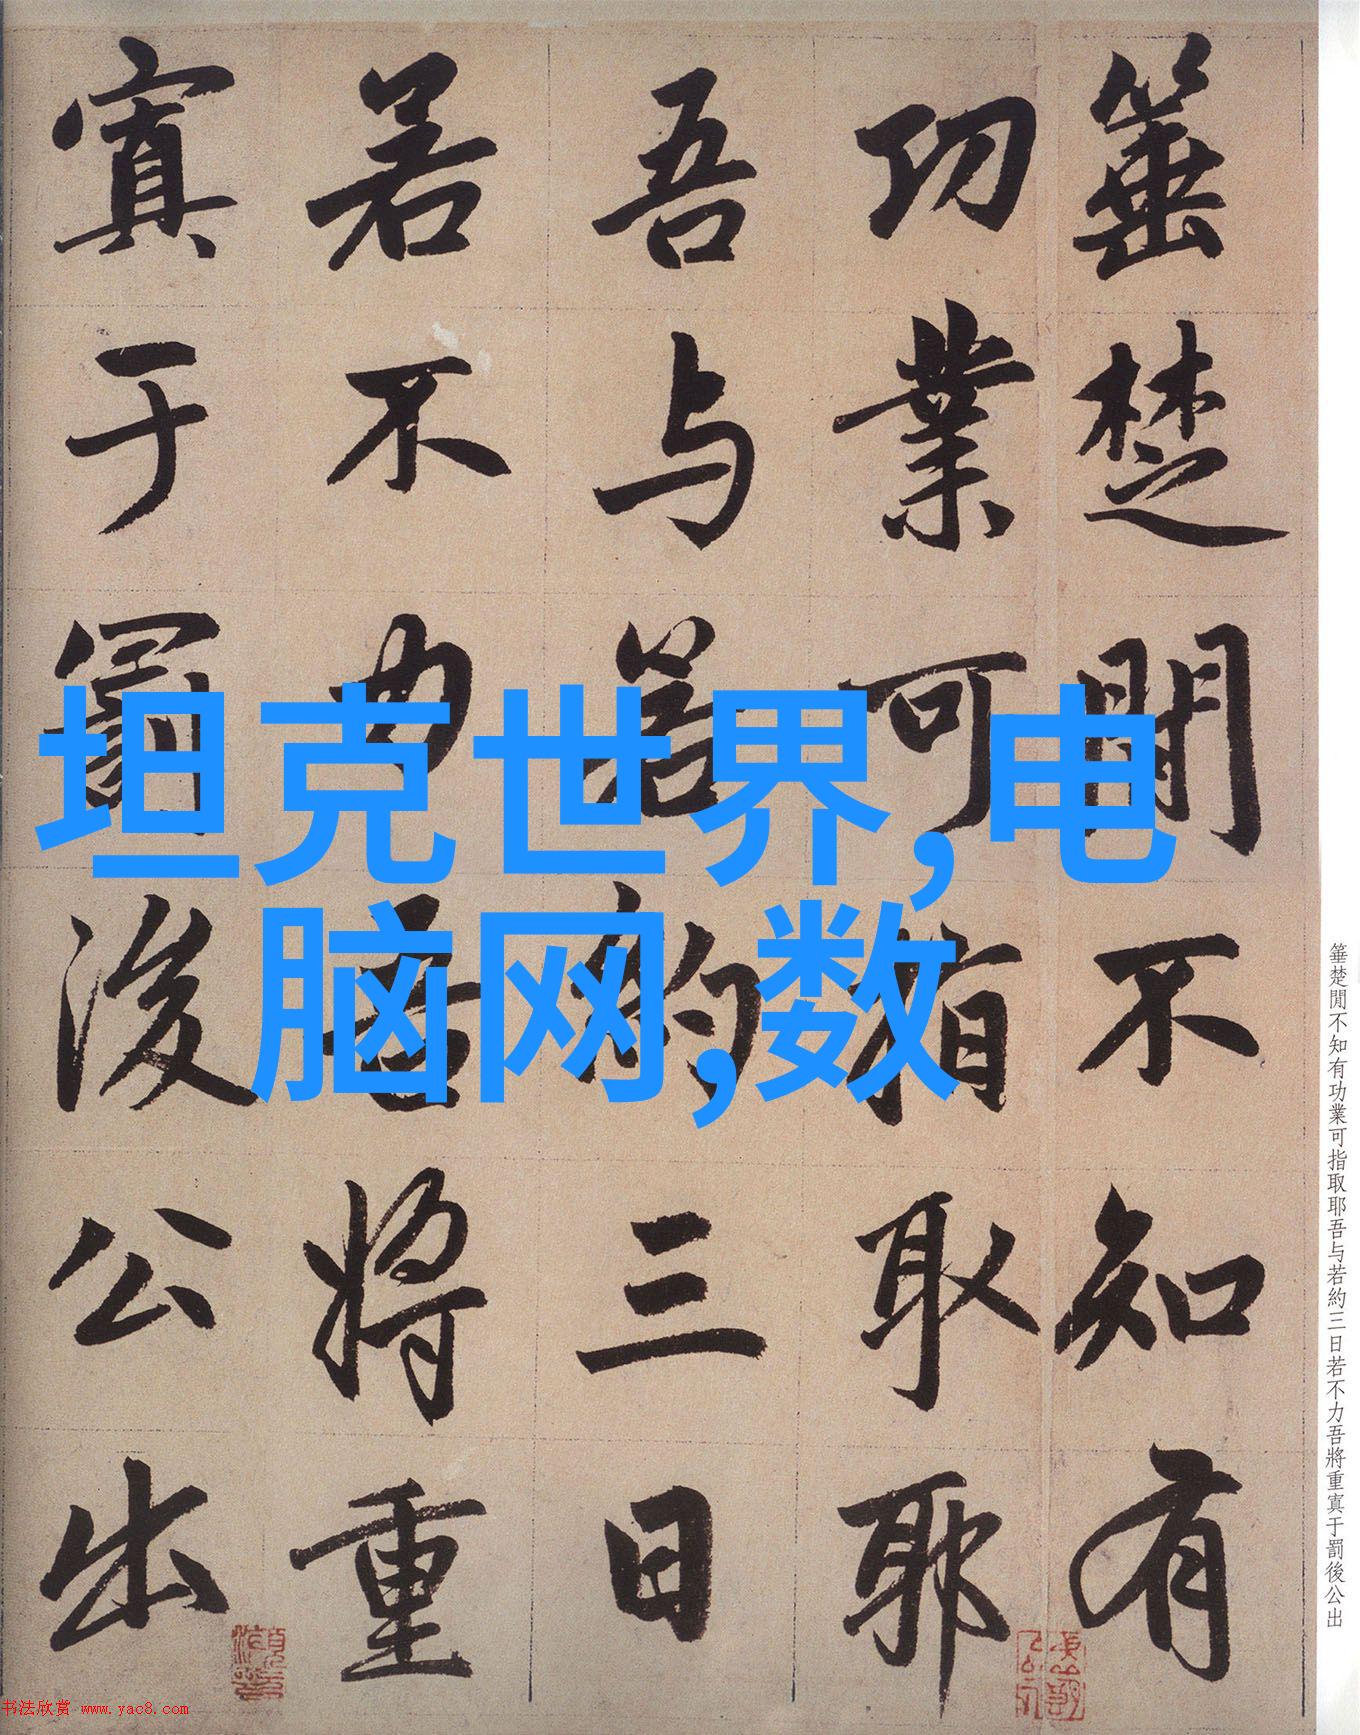 箠楚閒不知有
功業可指取耶
吾与若約三日
若不力吾將重
寘于罰後公出
坦克世界,电
脑网,数
箠楚閒不知有功業可指取耶吾与若約三日若不力吾將重寘于罰後公出
书法欣赏 www.yac8.com